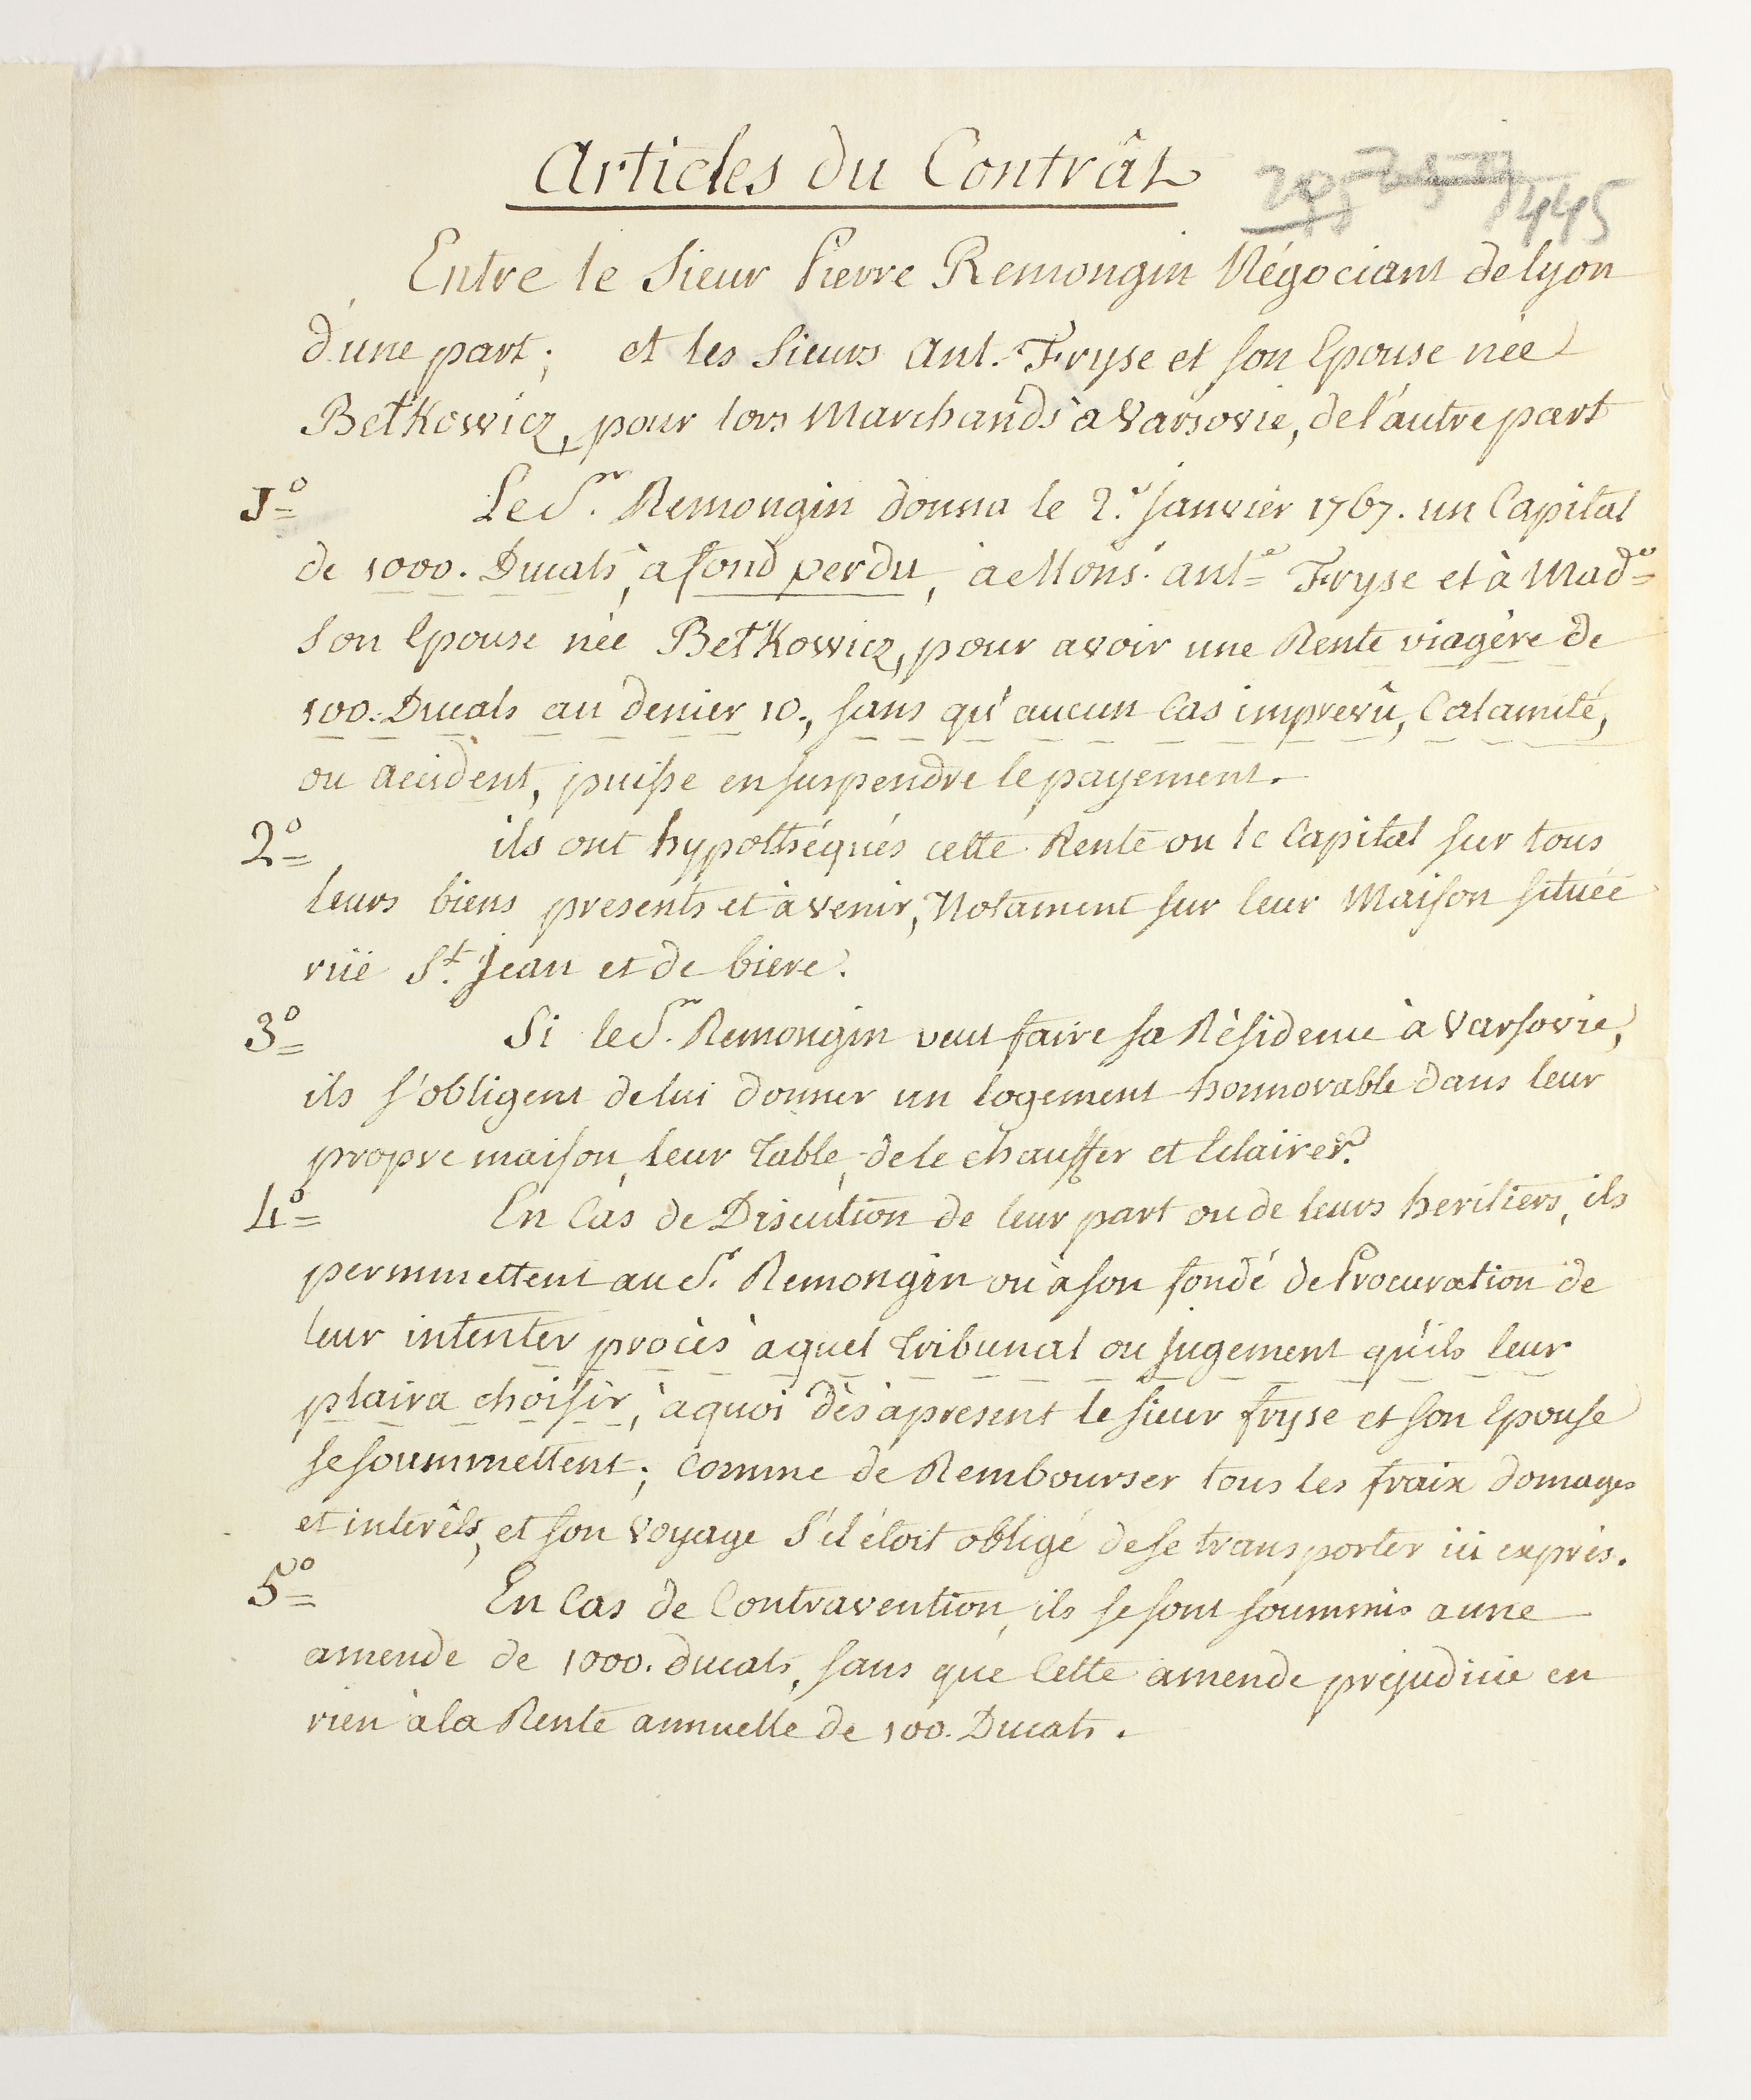 Articles du Contrât
445
Entre le Sieur Pierre Remongin Négociant de lyon
d'une part; et les Sieurs Ant. Fryse et son Epouse née
Betkowicz, pour lors Marchands à Varsovie, de l'autre part
1º Le Sr. Remongin donna le 2.e Janvier 1767. un Capital
de 1000. Ducats, à fond perdu, à Mons.r ant.e Fryse et à Mad.e
son Epouse née Betkowicz, pour avoir une Rente viagère de
100. Ducats au denier 10., sans qu'aucun Cas imprevû, Calamité,
ou accident, puisse en suspendre le payement.
2º ils ont hypothéqués cette Rente ou le Capital sur tous
leurs biens presents et à venir, Notament sur leur Maison située
rüe St. Jean et de biere.
3º Si le Sr. Remongin veut faire sa Résidence à Varsovie,
ils s'obligent de lui donner un logement honnorable dans leur
propre maison, leur Table, de le chauffer et Eclairer.
4º En Cas de Discution de leur part ou de leurs heritiers, ils
permmettent au Sr. Remongin ou à son fondé de Procuration de
leur intenter procès à quel Tribunal ou jugement qu'ils leur
plaira choisir, à quoi dès à present le sieur fryse et son Epouse
se soummettent; Comme de Rembourser tous les fraix domages
et interêts, et son Voyage S'il étoit obligé de se transporter ici exprès.
5º En Cas de Contravention, ils se sont soummis a une
amende de 1000. ducats, sans que Cette amende prejudicie en
rien à la Rente annuelle de 100. Ducats.